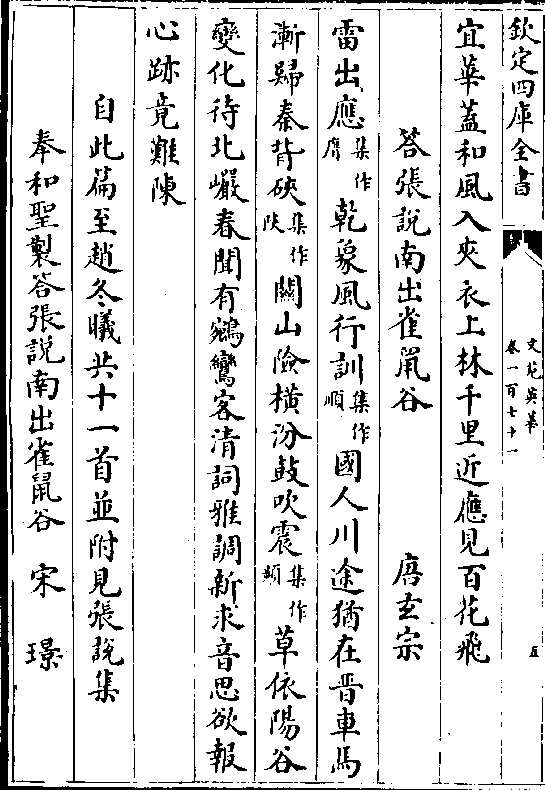 欽定四庫全書
文苑英華
卷一百七十一
五
宜華蓋和風入夾衣上林千里近應見百花飛
答張說南出雀䑕谷 唐玄宗
雷出應集作膺乾象風行訓集作順國人川途猶在晉車馬
漸歸秦背硤集作陜關山險橫汾鼓吹震集作頻草依陽谷
變化待北巖春聞有鵷鸞客清詞雅調新求音思欲報
心跡竟難陳
自此篇至趙冬曦共十一首並附見張說集
奉和聖製答張說南出雀䑕谷 宋璟